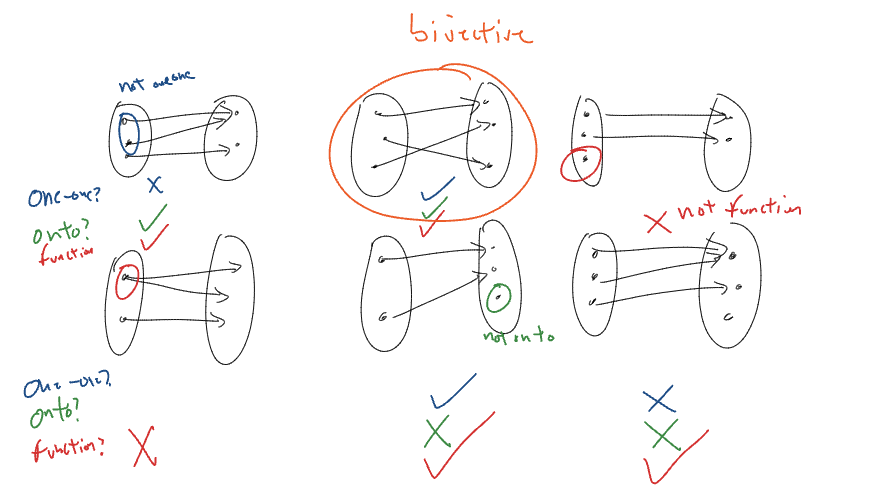 bijective
not one one
one-one?
onto?
function
not function
not onto
one-one?
onto?
function?